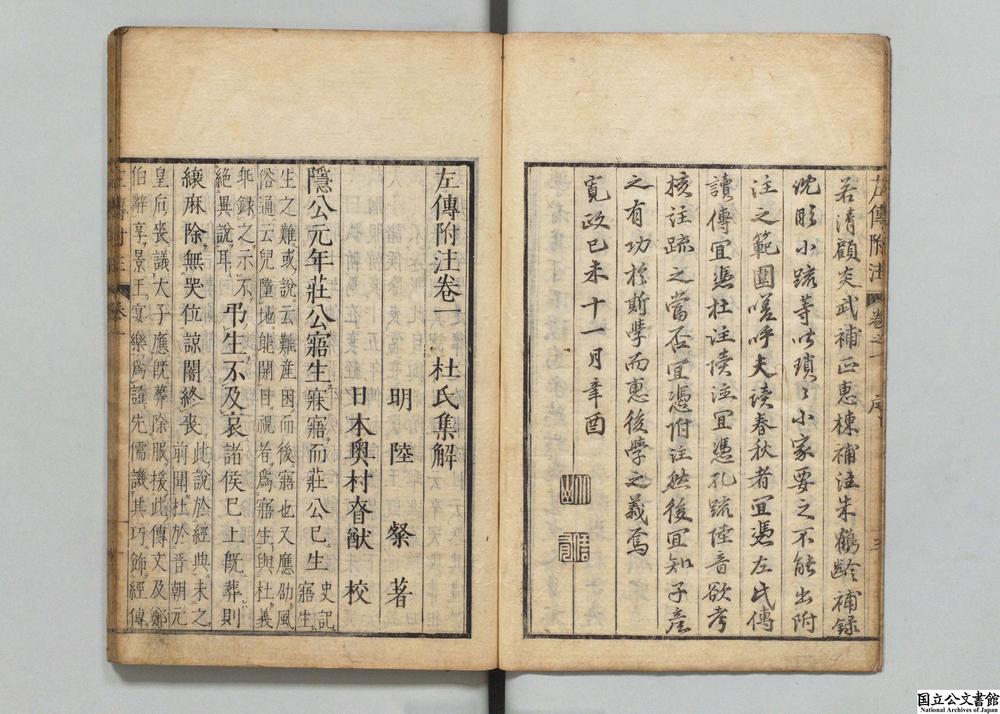 左傳附注 卷之一 序 三
若清顧炎武補正惠棟補注朱鶴齡補録
沈彤小疏等皆瑣〻小家要之不能出附
注之範圍嗟呼夫讀春秋者宜憑左氏傳
讀傳宜憑杜注讀注宜憑孔疏陸音欲考
核注疏之當否宜憑附注然後宜知子彦
之有功於斯學而惠後學之義焉
寛政己未十一月辛酉
左傳附注卷一 杜氏集解
明 陸粲 著
日本奥村眘猷 校
隱公元年莊公寤生寐寤而莊公已生 史記寤生
生之難或說云難産困而後寤也又應劭風
俗通云兒墮地能開目視者爲寤生與杜義
乖録之示不
絶異說耳
弔生不及哀諸侯已上旣葬則
縗麻除無哭位諒闇終喪
此說於經典未之
前聞杜於晉朝元
皇后喪議太子應旣葬除服援此傳文及鄭
伯辭享景王宴樂爲證先儒譏其巧飾經傳
左傳附注 卷一 一
国立公文書館
National Archives of Japan